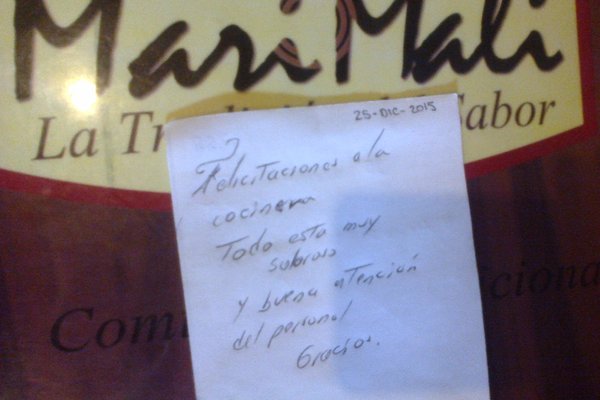 MariMali
La Tradición del Sabor
25-DIC-2015
Felicitaciones a la
cocinera
Todo esta muy
sabroso
y buena atención
del personal
Gracias.
Com
ciona